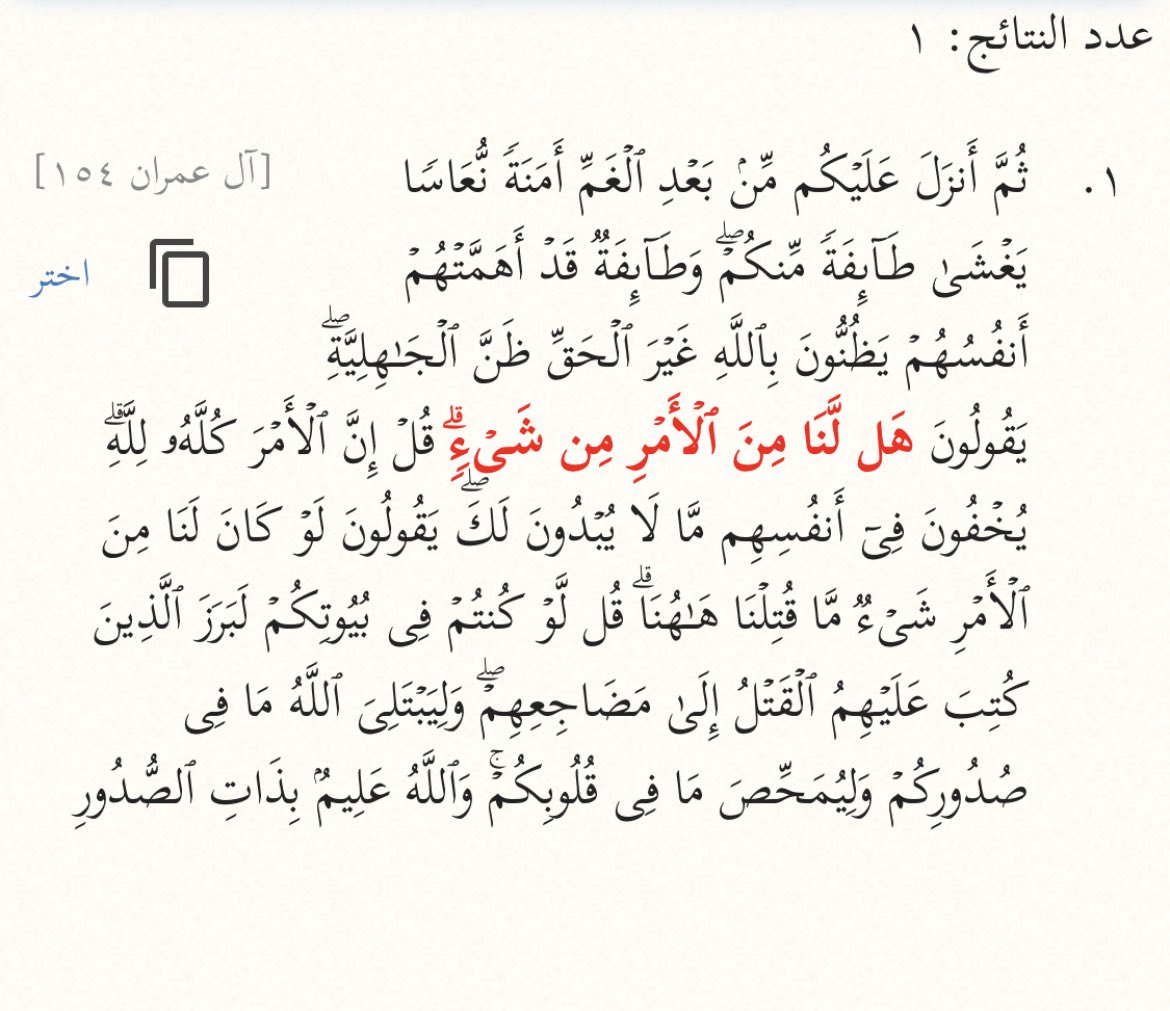 عدد النتائج: ١
١. ثُمَّ أَنزَلَ عَلَيۡكُم مِّنۢ بَعۡدِ ٱلۡغَمِّ أَمَنَةٗ نُّعَاسٗا [آل عمران ١٥٤]
يَغۡشَىٰ طَآئِفَةٗ مِّنكُمۡۖ وَطَآئِفَةٞ قَدۡ أَهَمَّتۡهُمۡ اختر
أَنفُسُهُمۡ يَظُنُّونَ بِٱللَّهِ غَيۡرَ ٱلۡحَقِّ ظَنَّ ٱلۡجَٰهِلِيَّةِۖ
يَقُولُونَ هَل لَّنَا مِنَ ٱلۡأَمۡرِ مِن شَيۡءٖۗ قُلۡ إِنَّ ٱلۡأَمۡرَ كُلَّهُۥ لِلَّهِۗ
يُخۡفُونَ فِيٓ أَنفُسِهِم مَّا لَا يُبۡدُونَ لَكَۖ يَقُولُونَ لَوۡ كَانَ لَنَا مِنَ
ٱلۡأَمۡرِ شَيۡءٞ مَّا قُتِلۡنَا هَٰهُنَاۗ قُل لَّوۡ كُنتُمۡ فِي بُيُوتِكُمۡ لَبَرَزَ ٱلَّذِينَ
كُتِبَ عَلَيۡهِمُ ٱلۡقَتۡلُ إِلَىٰ مَضَاجِعِهِمۡۖ وَلِيَبۡتَلِيَ ٱللَّهُ مَا فِي
صُدُورِكُمۡ وَلِيُمَحِّصَ مَا فِي قُلُوبِكُمۡۚ وَٱللَّهُ عَلِيمُۢ بِذَاتِ ٱلصُّدُورِ